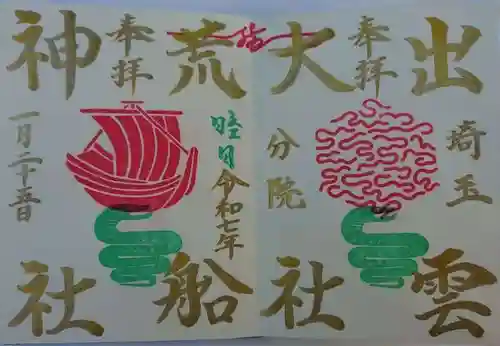 奉拝
出雲
大社
埼玉
分院
奉拝
荒船
神社
睦月
令和七年
一月二十五日